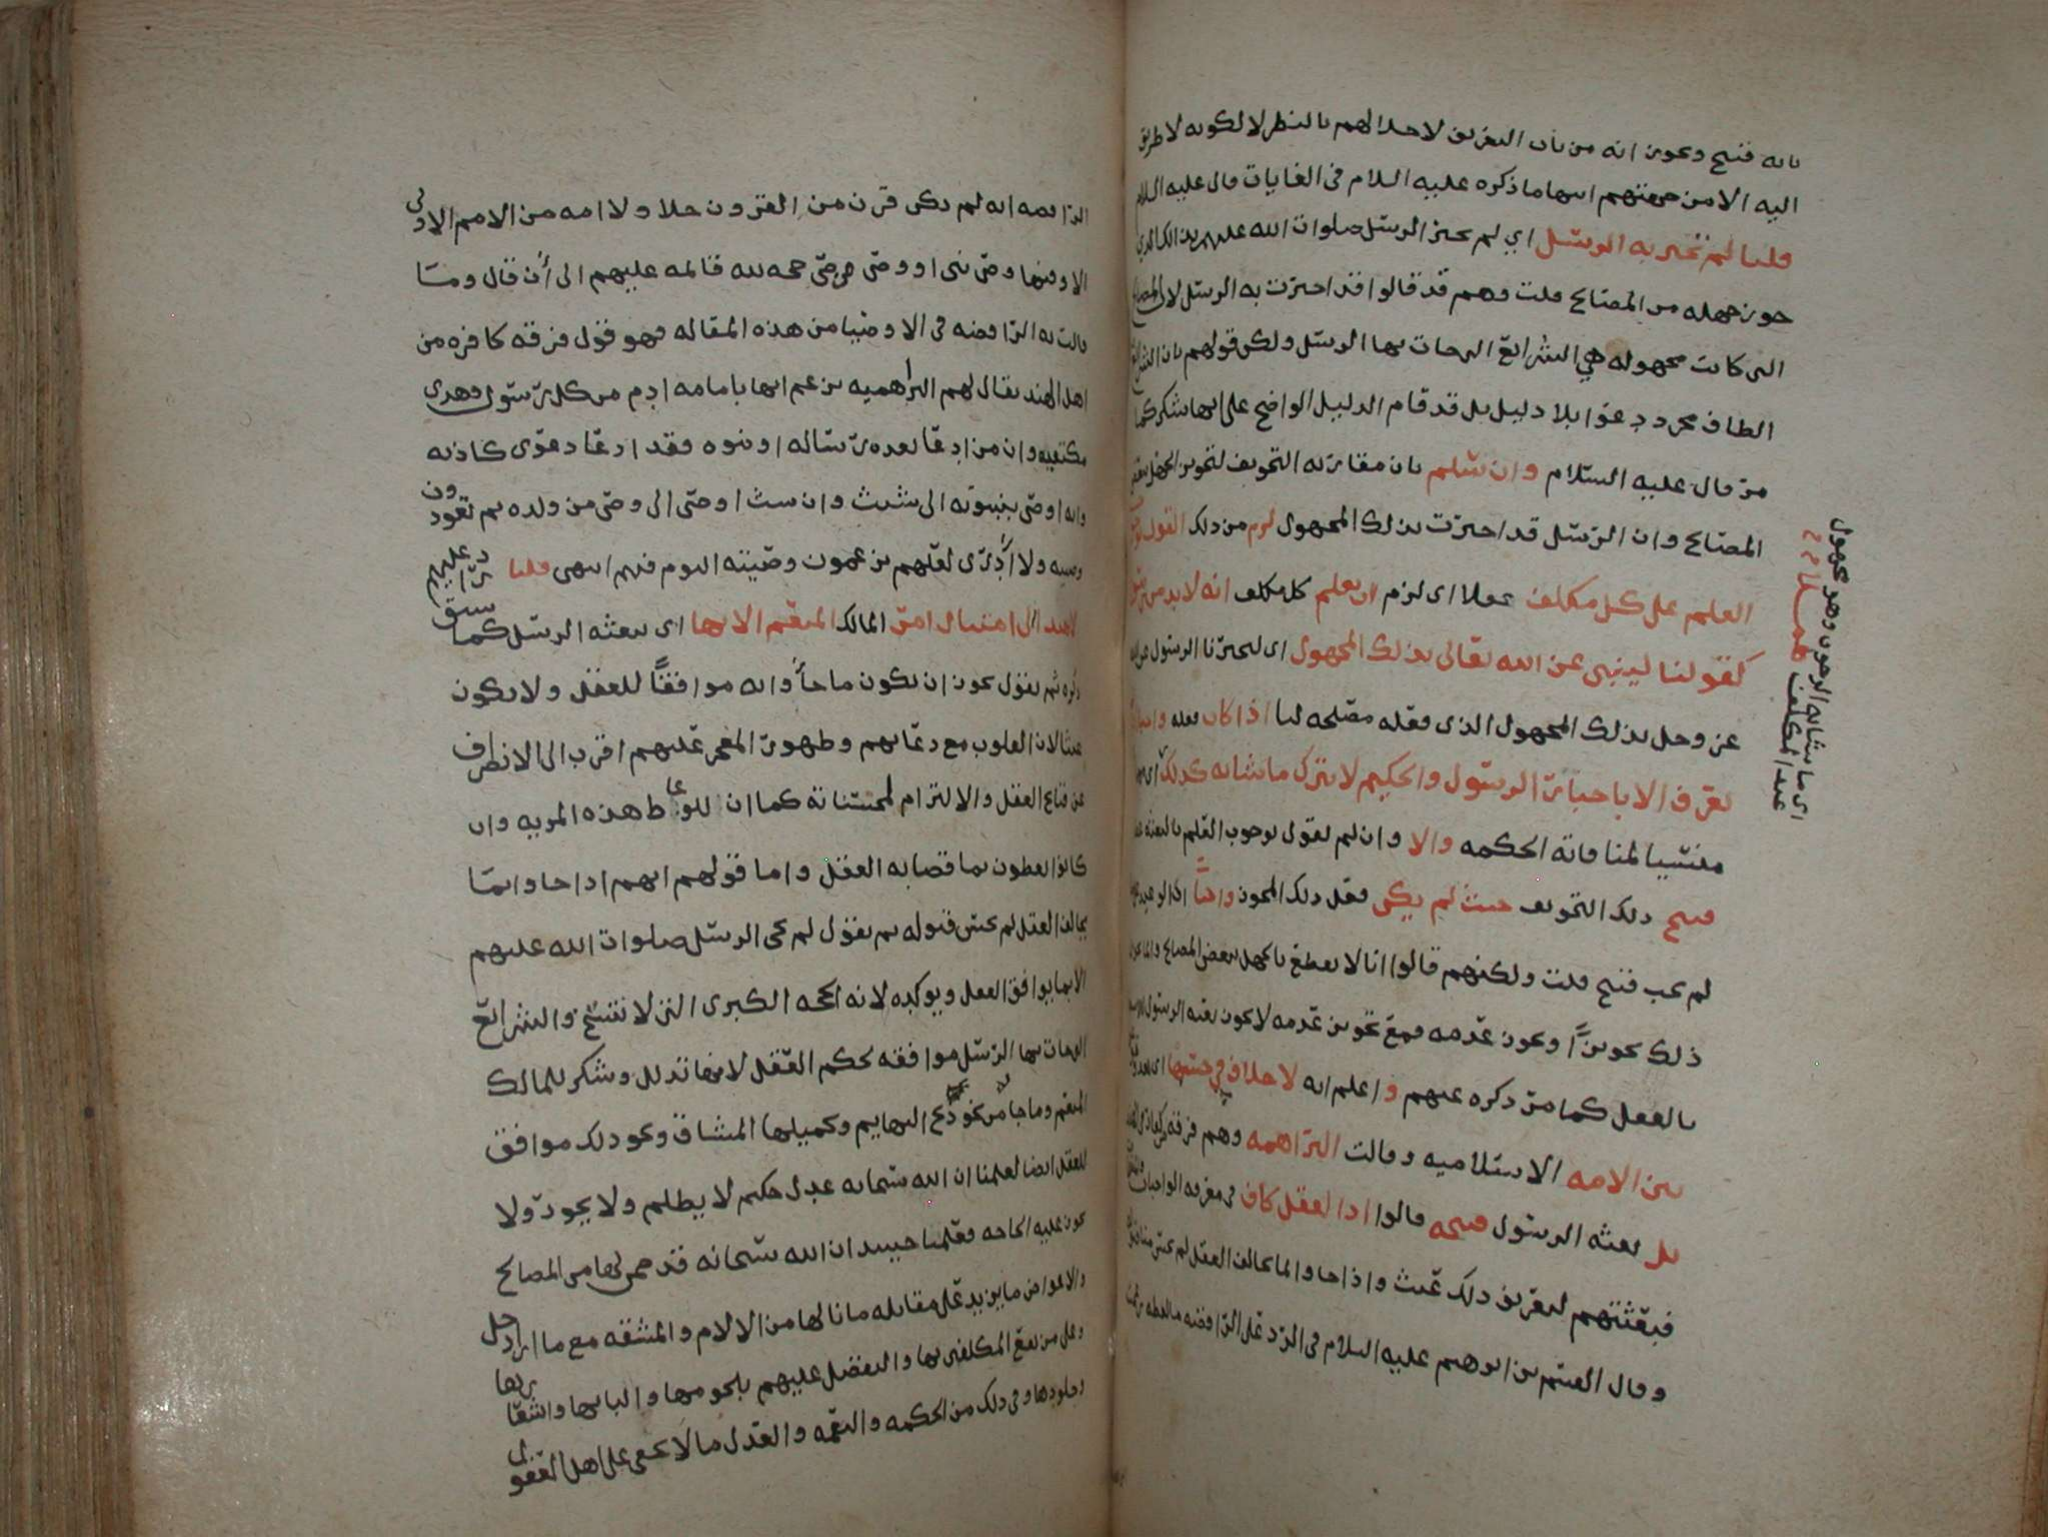 بانه قبيح وبجوز انه من باب التعريف لا خلا لهم بالنظر لا لكونه لا طريق
اليه الا من جهتهم اسها ما ذكره عليه السلام في الغايات قال عليه السلام
قلنا لم تخبر به الرسل اي لم تخبر الرسل صلوات الله عليهم بذلك الذي
جوز جهله من المصالح قلت وهم قد قالوا قد اخبرت به الرسل لان المصالح
التي كانت مجهوله هي الشرائع التي جات بها الرسل ولكن قولهم بان الشرائع
الطاف مجرد دعوا بلا دليل بل قد قام الدليل الواضح على انها شكر كما
مر قال عليه السلام وان سلم بان مقارنه التخويف لتجويز الجهل ببعض
المصالح وان الرسل قد اخبرت بذلك المجهول لزم من ذلك القول
العلم على كل مكلف عقلا اي لزم ان يعلم كل مكلف انه لا بد من رسول
كقولنا لينبي عن الله تعالى بذلك المجهول اي ليخبرنا الرسول عن الله
عز وجل بذلك المجهول الذي فعله مصلحه لنا اذا كان فعله واجبا
تعرف الا باخبار الرسول والحكيم لا يترك ما شانه كذلك اي
منسيا لمنافاته الحكمه والا وان لم نقول بوجوب العلم بالبعثه
قبح ذلك التخويف حيث لم يكن فعل ذلك المجوز واجبا اذ الوعيد
لم يجب قبيح قلت ولكنهم قالوا انا لا نقطع بالجهل ببعض المصالح وانما
ذلك تجويزا وبجوز عدمه فمع تجويز عدمه لا بجوز بعثه الرسول
بالفعل كما مر ذكره عنهم واعلم انه لا خلاف في حسنها اي
بين الامه الاسلاميه وقالت البراهمه وهم فرقه من
بل بعثه الرسول قبيحه قالوا اذ العقل كاف في معرفه الواجبات
فبعثتهم لتعريف ذلك عبث واذا جاوا بما يخالف العقل لم
وقال القسم بن ابرهيم عليه السلام في الرد على الرافضه ما لفظه زعمت
اي ما شانه الوجوب وهو مجهول
عند المكلف
الرافضه انه لم يكن قرن من القرون خلا ولا امه من الامم الاولى
الا وفيها وصي نبي او وصي وصي حجه لله قائمه عليهم الى أن قال وما
قالت به الرافضه في الاوصيا من هذه المقاله فهو قول فرقه كافره من
اهل الهند يقال لهم البراهميه تزعم انها بامامه ادم من كل رسول وهدى
مكتفيه وان من ادعا بعده رساله او نبوه فقد ادعا دعوى كاذبه
وانه اوصى بنبوته الى شيث وان شيث اوصى الى وصي من ولده ثم يقودون
وصيه ولا أدري لعلهم يزعمون وصيته اليوم فيهم انتهى قلنا ردا عليهم
لا يهتدى الى امتثال امر المالك المنعم الا بها اي ببعثه الرسل كما سبق
ذكره ثم نقول بجوز ان يكون ما جأوا به موافقًا للعقل ولا يكون
عبثا لان القلوب مع دعائهم وظهور المعجز عليهم اقرب الى الانصراف
عن قناع العقل والالتزام لمحسناته كما ان للوعاظ هذه المزيه وان
كانوا يعظون بما قضا به العقل واما قولهم انهم اذا جاوا بما
يخالف العقل لم يحسن قبوله ثم نقول لم تجي الرسل صلوات الله عليهم
الا بما يوافق العقل ويوكده لانه الحجه الكبرى التي لا تنسخ والشرائع
التي جات بها الرسل موافقه لحكم العقل لانها تذلل وشكر للمالك
المنعم وما جا من نحو ذبح البهايم وتحميلها المشاق ونحو ذلك موافق
للعقل ايضا لعلمنا ان الله سبحانه عدل حكيم لا يظلم ولا يجور ولا
تجوز عليه الحاجه فعلمنا حينيد ان الله سبحانه قد ضمن لها من المصالح
والاعواض ما يزيد على مقابله ما نالها من الالام والمشقه مع ما اراد جل
وعلى من نفع المكلفين بها والتفضل عليهم بلحومها والبانها واشعارها
وجلودها وفي ذلك من الحكمه والنعمه والعدل ما لا يخفى على اهل العقول